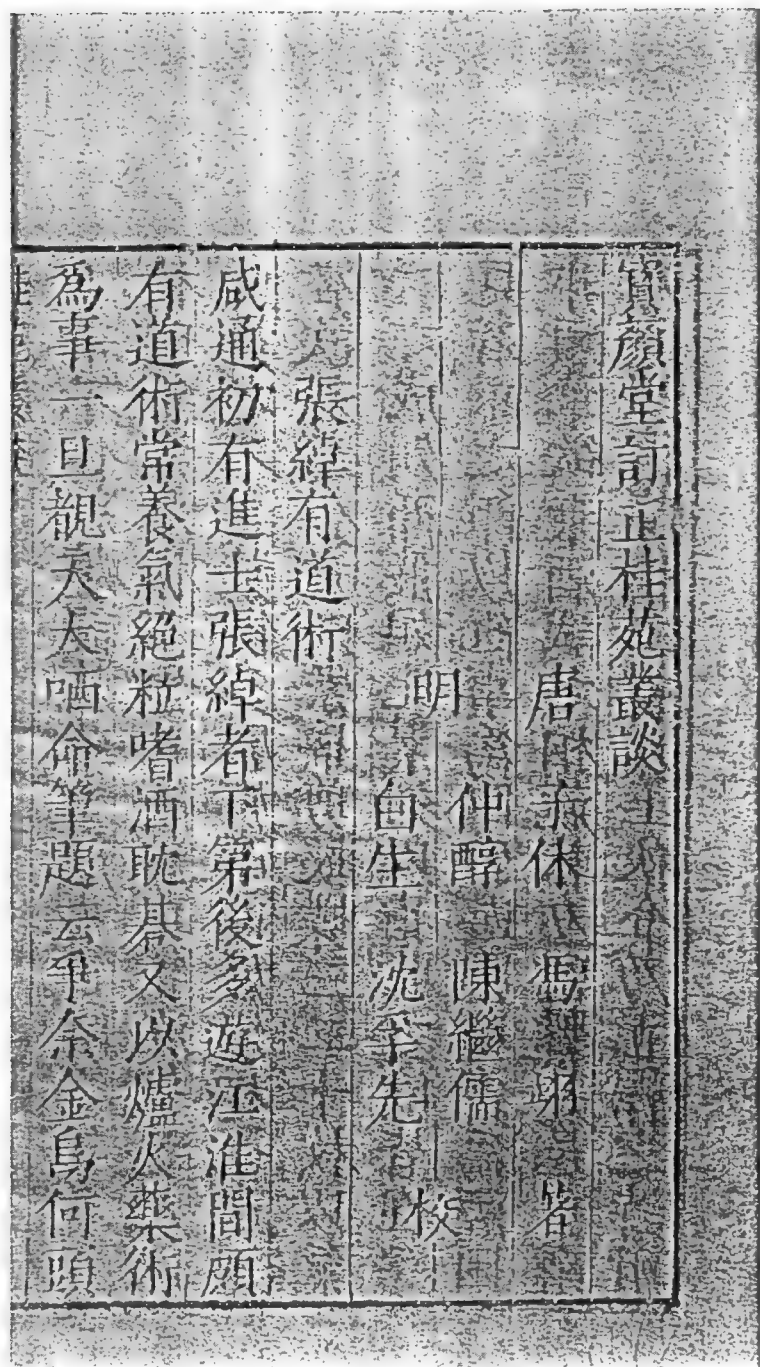 寶顏堂訂正桂苑叢談
唐 子休 馮翊 著
明 仲醇 陳繼儒
白生 沈孚先 校
張綽有道術
咸通初有進士張綽者下第後多遊江淮間頗
有道術常養氣絕粒嗜酒耽碁又以爐火藥術
為事一旦覩天大哂命筆題云爭奈金烏何頭